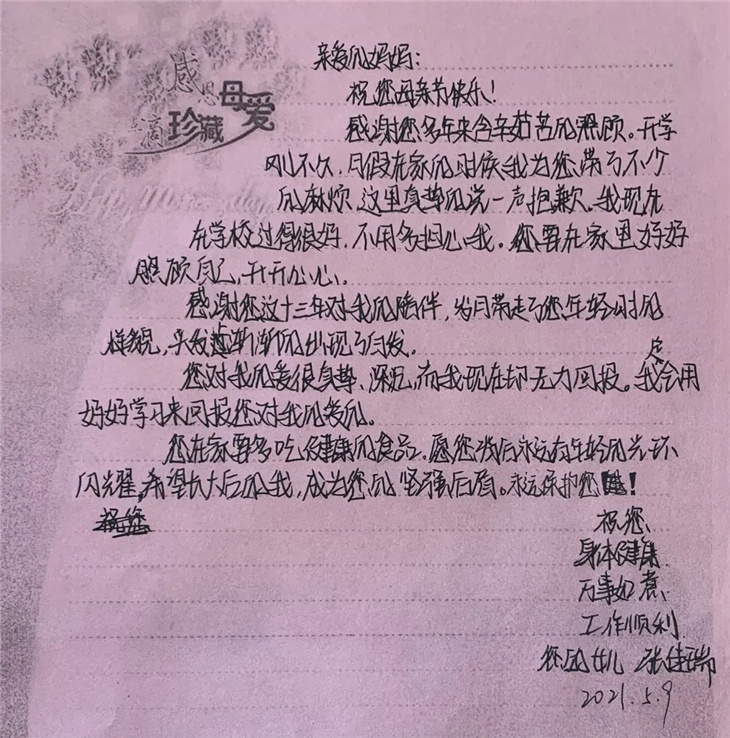 感恩母爱
珍藏
亲爱的妈妈：
祝您母亲节快乐！
感谢您多年来含辛茹苦的照顾。开学
刚不久，月假在家的时候我为您带了不少
的麻烦，这里真挚的说一声抱歉。我现在
在学校过得很好，不用多担心我。您要在家里好好
照顾自己，开开心心。
感谢您这十三年对我的陪伴，岁月带走了您年轻时的
样貌，头发也渐渐的出现了白发。
您对我的爱很真挚、深沉，而我现在却无力回报。我会用
好好学习来回报您对我的爱的。
您在家要多吃健康的食品，愿您我后永远有年轻的光环
闪耀，希望长大后的我，成为您的坚强后盾。永远保护您！
祝您
祝您、
身体健康
万事如意、
工作顺利
您的女儿 张佳瑞
2021.5.9